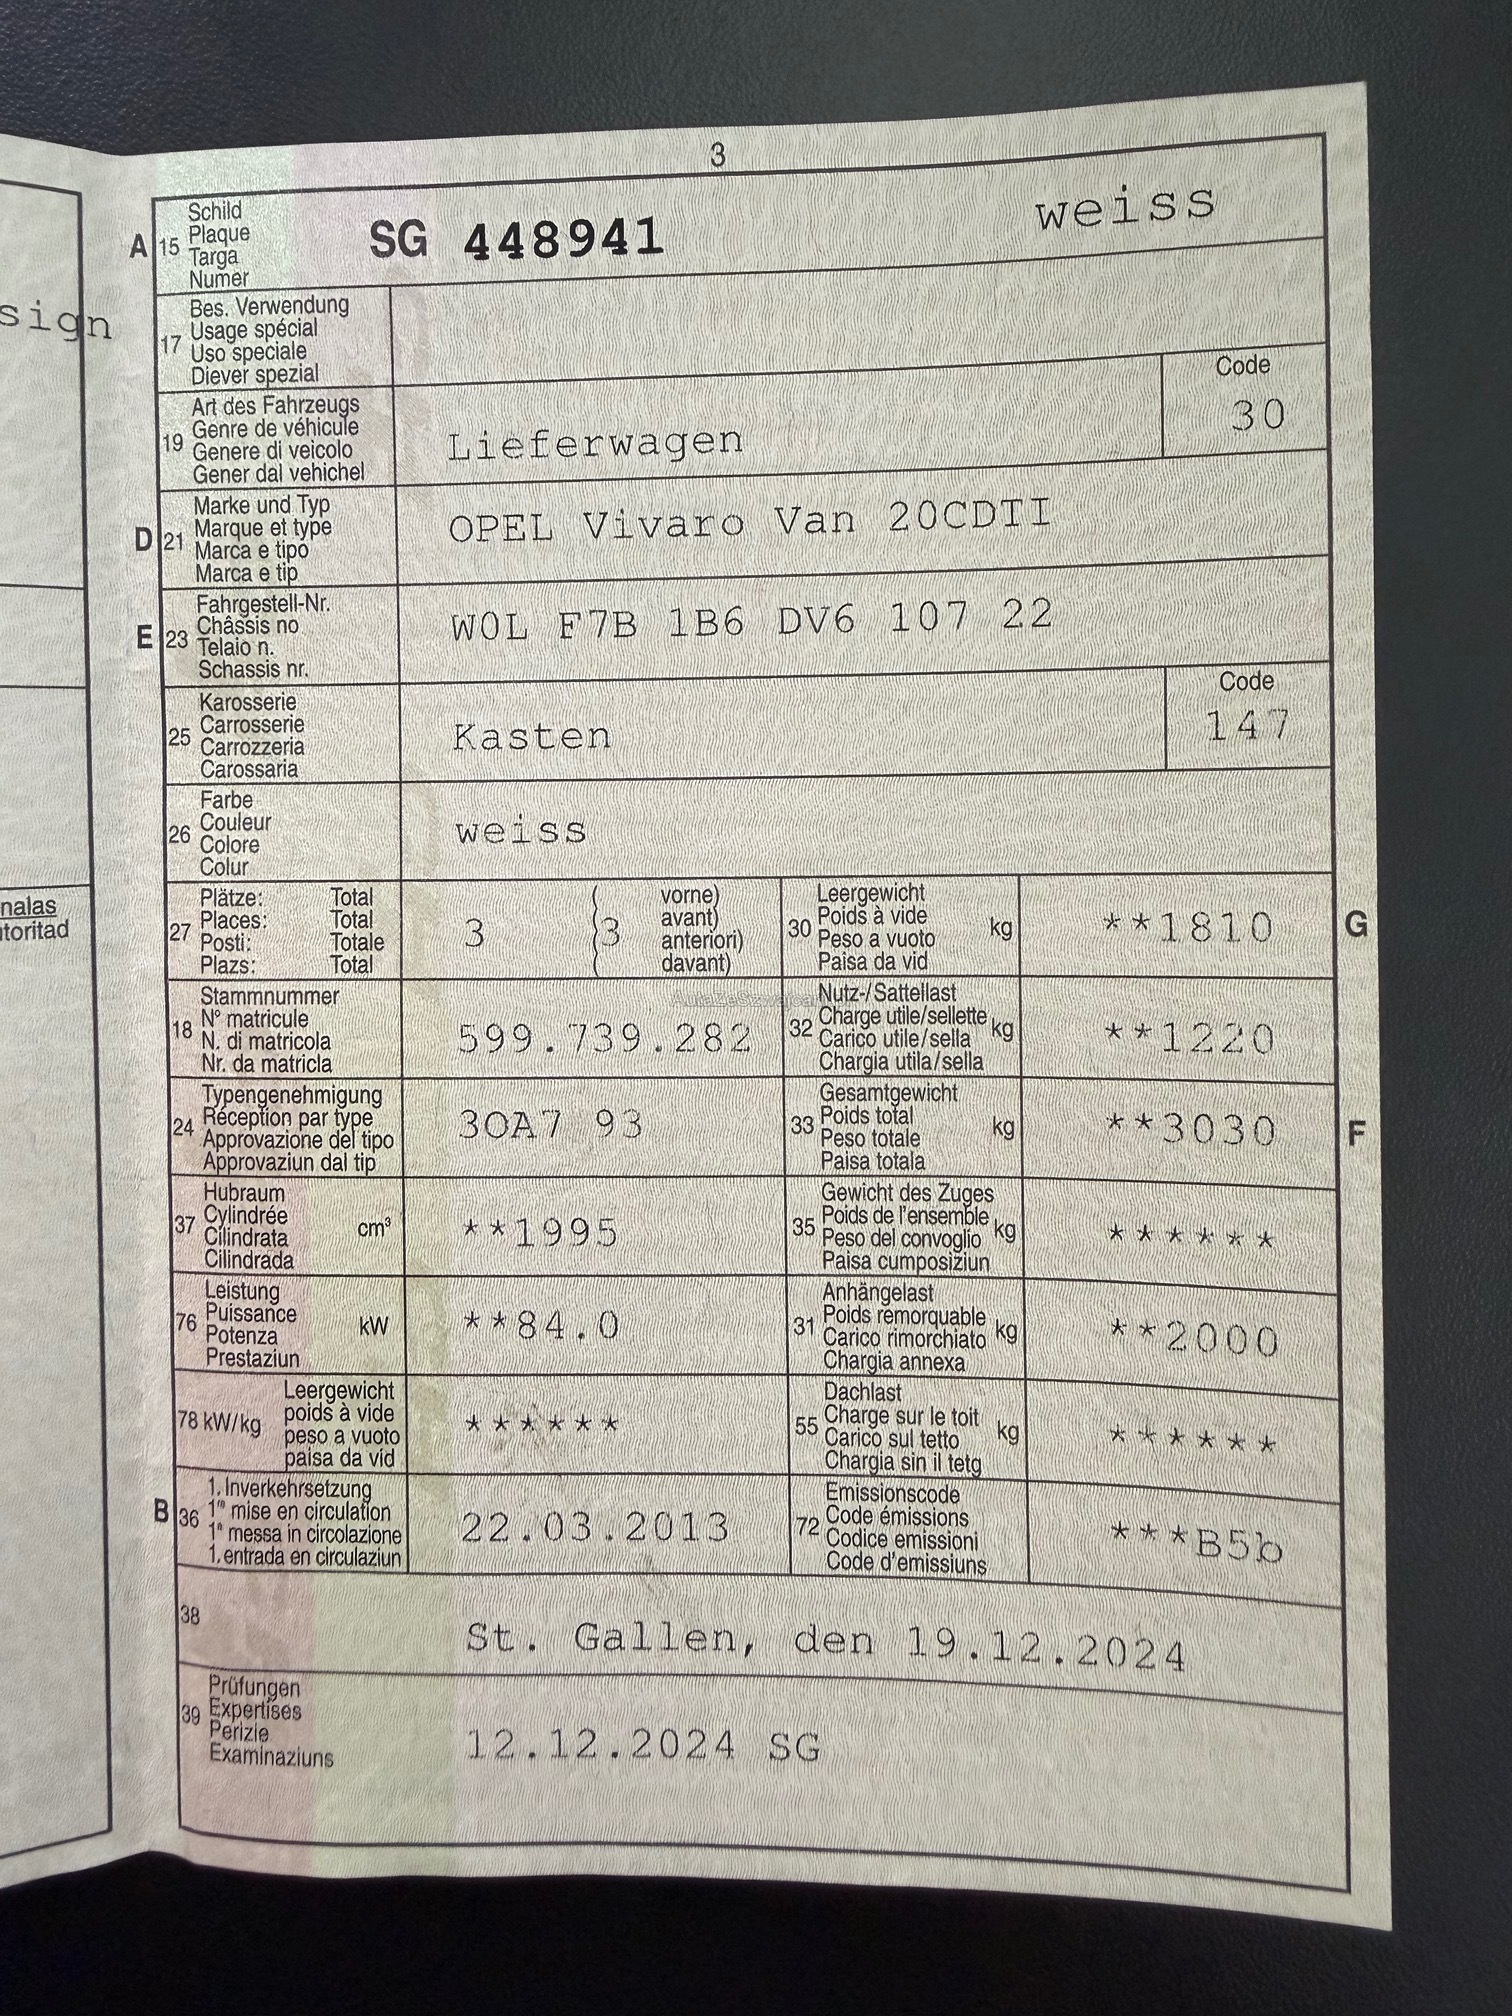 3
A 15 Schild Plaque Targa Numer SG 448941 weiss
sign
17 Bes. Verwendung
Usage spécial
Uso speciale
Diever spezial
19 Art des Fahrzeugs
Genre de véhicule
Genere di veicolo
Gener dal vehichel
Lieferwagen
Code
30
D 21 Marke und Typ
Marque et type
Marca e tipo
Marca e tip
OPEL Vivaro Van 20CDTI
E 23 Fahrgestell-Nr.
Châssis no
Telaio n.
Schassis nr.
W0L F7B 1B6 DV6 107 22
25 Karosserie
Carrosserie
Carrozzeria
Carossaria
Kasten
Code
147
26 Farbe
Couleur
Colore
Colur
weiss
nalas
toritad
27 Plätze: Total
Places: Total
Posti: Totale
Plazs: Total
3 (3 vorne)
avant)
anteriori)
davant)
30 Leergewicht
Poids à vide
Peso a vuoto
Paisa da vid
kg **1810 G
18 Stammnummer
N° matricule
N. di matricola
Nr. da matricla
599.739.282
32 Nutz-/Sattellast
Charge utile/sellette
Carico utile/sella
Chargia utila/sella
kg **1220
24 Typengenehmigung
Réception par type
Approvazione del tipo
Approvaziun dal tip
3OA7 93
33 Gesamtgewicht
Poids total
Peso totale
Paisa totala
kg **3030 F
37 Hubraum
Cylindrée
Cilindrata
Cilindrada
cm³ **1995
35 Gewicht des Zuges
Poids de l'ensemble
Peso del convoglio
Paisa cumposiziun
kg ******
76 Leistung
Puissance
Potenza
Prestaziun
kW **84.0
31 Anhängelast
Poids remorquable
Carico rimorchiato
Chargia annexa
kg **2000
78 kW/kg Leergewicht
poids à vide
peso a vuoto
paisa da vid
******
55 Dachlast
Charge sur le toit
Carico sul tetto
Chargia sin il tetg
kg ******
B 36 1. Inverkehrsetzung
1re mise en circulation
1a messa in circolazione
1. entrada en circulaziun
22.03.2013
72 Emissionscode
Code émissions
Codice emissioni
Code d'emissiuns
***B5b
38 St. Gallen, den 19.12.2024
39 Prüfungen
Expertises
Perizie
Examinaziuns
12.12.2024 SG